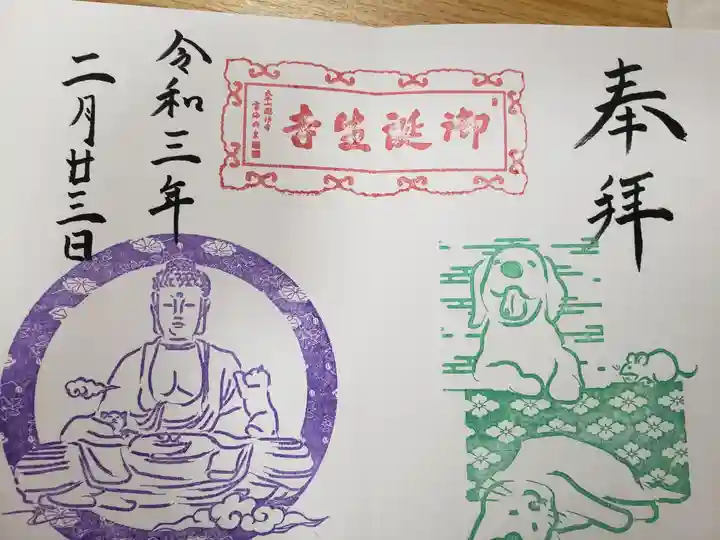 奉拝
御誕生寺
令和三年
二月廿三日